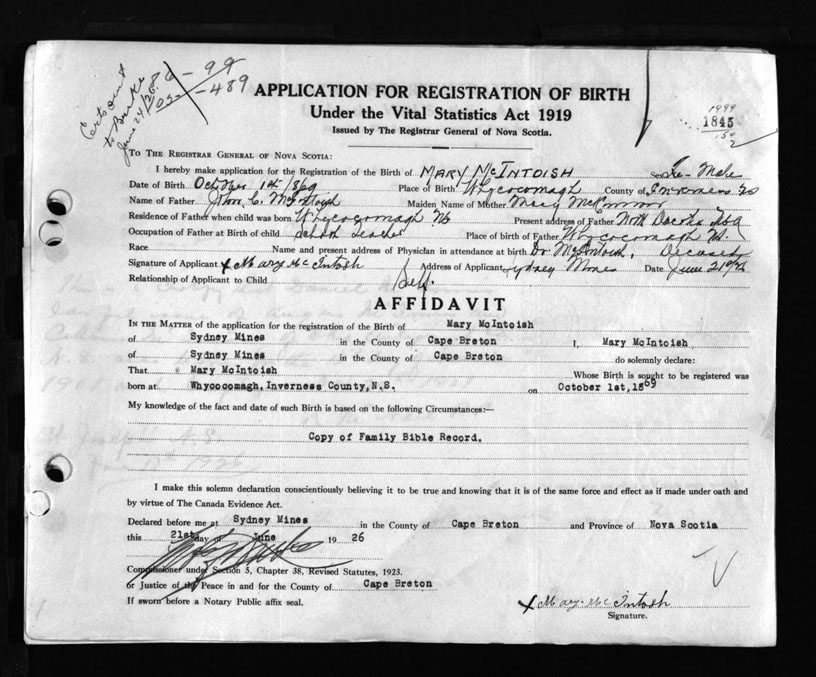 99
489
APPLICATION FOR REGISTRATION OF BIRTH
Under the Vital Statistics Act 1919
Issued by The Registrar General of Nova Scotia.
1845
TO THE REGISTRAR GENERAL OF NOVA SCOTIA:
I hereby make application for the Registration of the Birth of MARY MCINTOISH Sex Fe-Male
Date of Birth October 1st 1869 Place of Birth Whycocomagh County of Inverness NS
Name of Father John C. McIntoish Maiden Name of Mother Mary McKinnon
Residence of Father when child was born Whycocomagh NS Present address of Father North Dacota USA
Occupation of Father at Birth of child School Teacher Place of birth of Father Whycocomagh NS.
Race Name and present address of Physician in attendance at birth Dr McIntosh, Deceased
Signature of Applicant X Mary McIntosh Address of Applicant Sydney Mines Date June 21st/26
Relationship of Applicant to Child Self.
AFFIDAVIT
IN THE MATTER of the application for the registration of the Birth of Mary McIntoish
of Sydney Mines in the County of Cape Breton I, Mary McIntoish
of Sydney Mines in the County of Cape Breton do solemnly declare:
That Mary McIntoish Whose Birth is sought to be registered was
born at Whycocomagh, Inverness County, N.S. on October 1st, 1869
My knowledge of the fact and date of such Birth is based on the following Circumstances:—
Copy of Family Bible Record.
I make this solemn declaration conscientiously believing it to be true and knowing that it is of the same force and effect as if made under oath and
by virtue of The Canada Evidence Act.
Declared before me at Sydney Mines in the County of Cape Breton and Province of Nova Scotia
this 21st day of June 19 26
Commissioner under Section 5, Chapter 38, Revised Statutes, 1923.
or Justice of the Peace in and for the County of Cape Breton
If sworn before a Notary Public affix seal.
X Mary McIntosh
Signature.